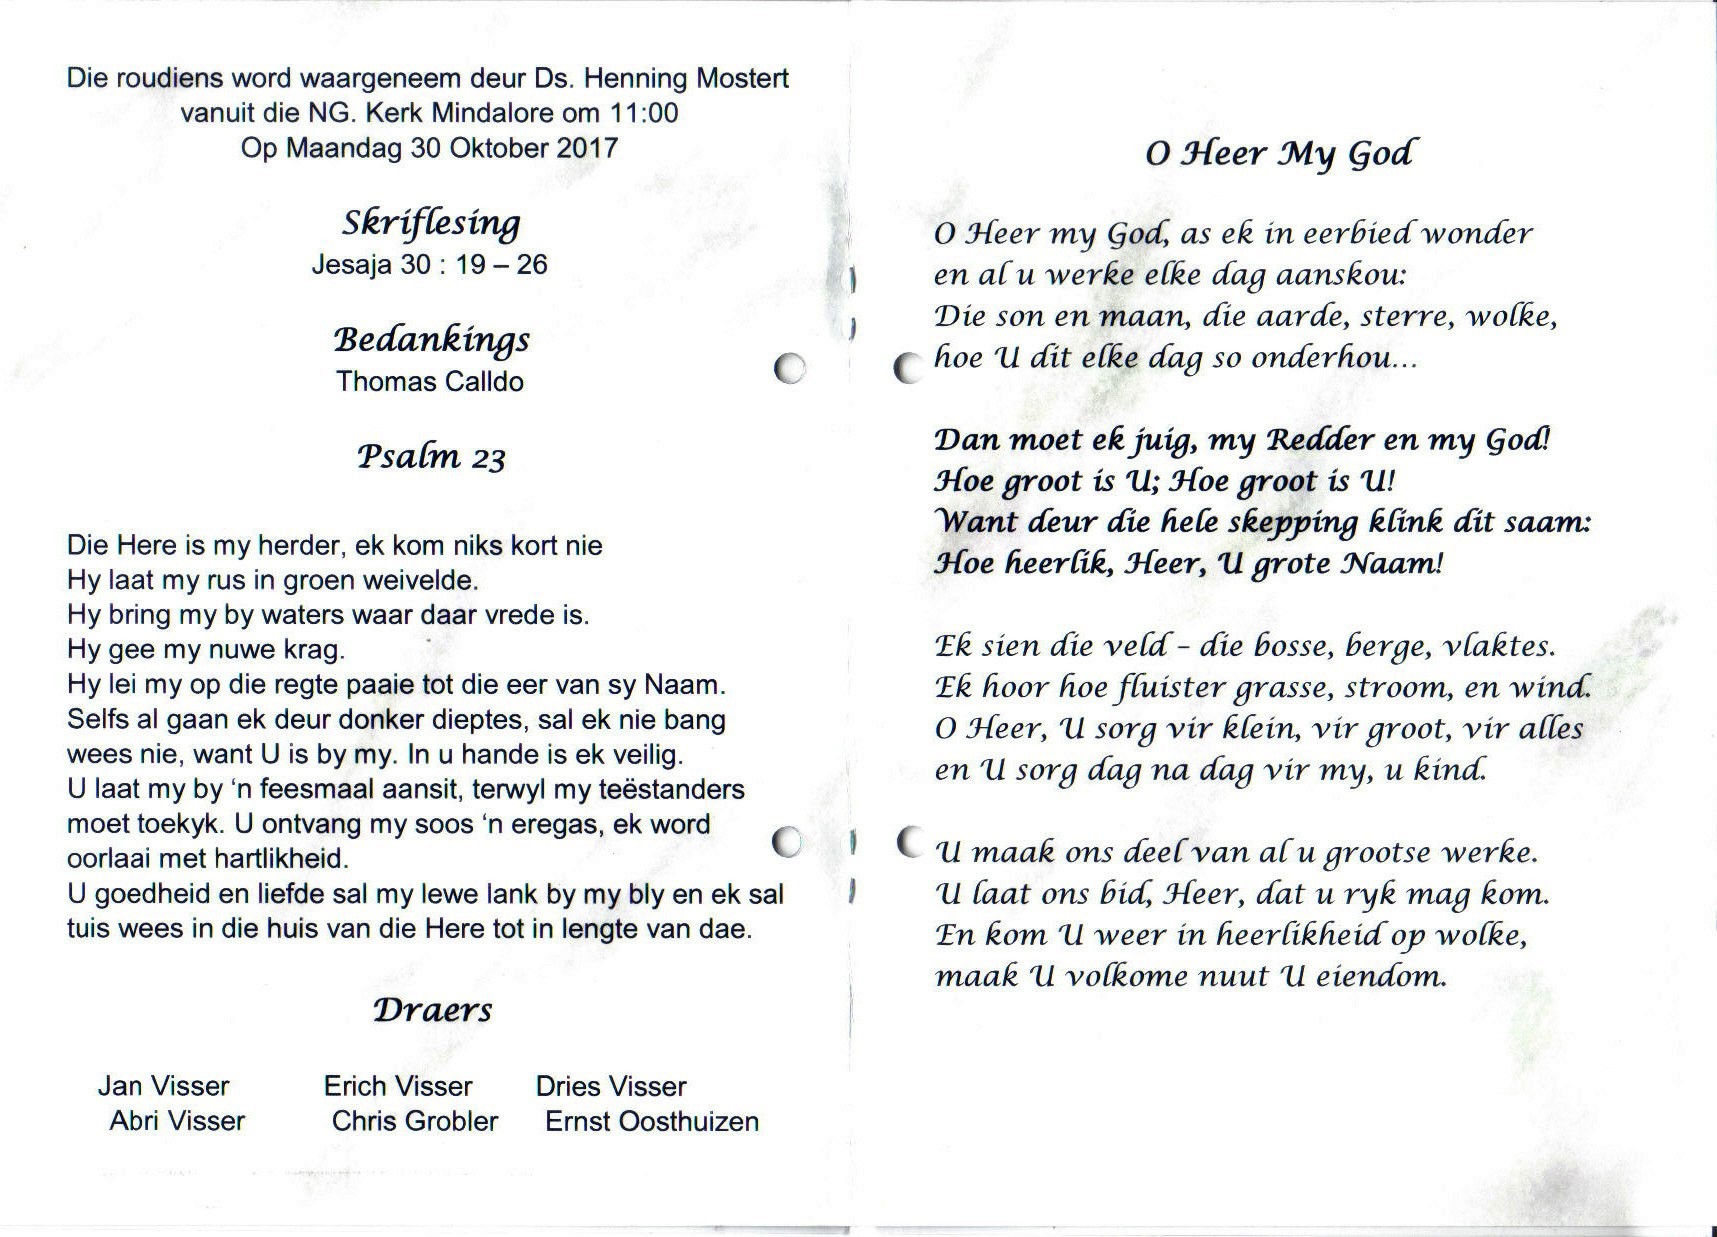 Die roudiens word waargeneem deur Ds. Henning Mostert
vanuit die NG. Kerk Mindalore om 11:00
Op Maandag 30 Oktober 2017
Skriflesing
Jesaja 30 : 19 – 26
Bedankings
Thomas Calldo
Psalm 23
Die Here is my herder, ek kom niks kort nie
Hy laat my rus in groen weivelde.
Hy bring my by waters waar daar vrede is.
Hy gee my nuwe krag.
Hy lei my op die regte paaie tot die eer van sy Naam.
Selfs al gaan ek deur donker dieptes, sal ek nie bang
wees nie, want U is by my. In u hande is ek veilig.
U laat my by ‘n feesmaal aansit, terwyl my teëstanders
moet toekyk. U ontvang my soos ‘n eregas, ek word
oorlaai met hartlikheid.
U goedheid en liefde sal my lewe lank by my bly en ek sal
tuis wees in die huis van die Here tot in lengte van dae.
Draers
Jan Visser Erich Visser Dries Visser
Abri Visser Chris Grobler Ernst Oosthuizen
O Heer My God
O Heer my God, as ek in eerbied wonder
en al u werke elke dag aanskou:
Die son en maan, die aarde, sterre, wolke,
hoe U dit elke dag so onderhou...
Dan moet ek juig, my Redder en my God!
Hoe groot is U; Hoe groot is U!
Want deur die hele skepping klink dit saam:
Hoe heerlik, Heer, U grote Naam!
Ek sien die veld – die bosse, berge, vlaktes.
Ek hoor hoe fluister grasse, stroom, en wind.
O Heer, U sorg vir klein, vir groot, vir alles
en U sorg dag na dag vir my, u kind.
U maak ons deel van al u grootse werke.
U laat ons bid, Heer, dat u ryk mag kom.
En kom U weer in heerlikheid op wolke,
maak U volkome nuut U eiendom.